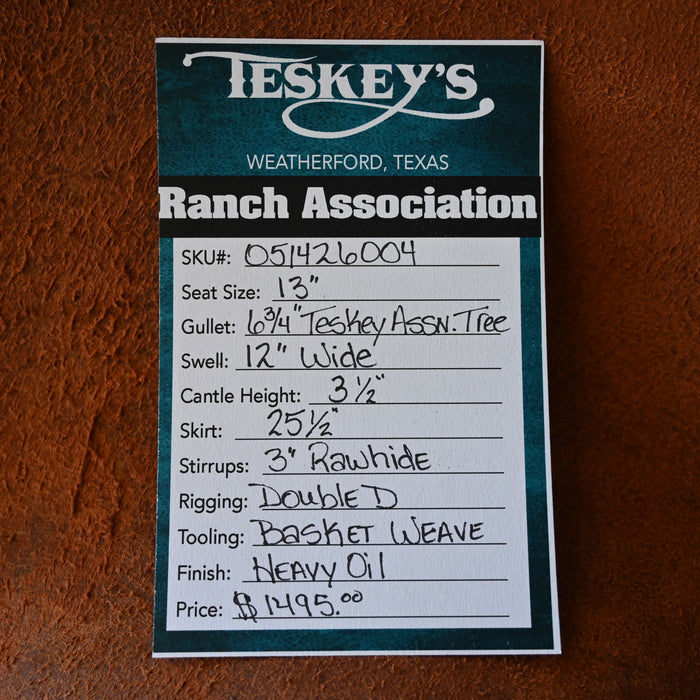 TESKEY'S
WEATHERFORD, TEXAS
Ranch Association
SKU#: 051426004
Seat Size: 13"
Gullet: 6 3/4" Teskey Assn. Tree
Swell: 12" Wide
Cantle Height: 3 1/2"
Skirt: 25 1/2"
Stirrups: 3" Rawhide
Rigging: Double D
Tooling: BASKET WEAVE
Finish: HEAVY Oil
Price: $1495.00